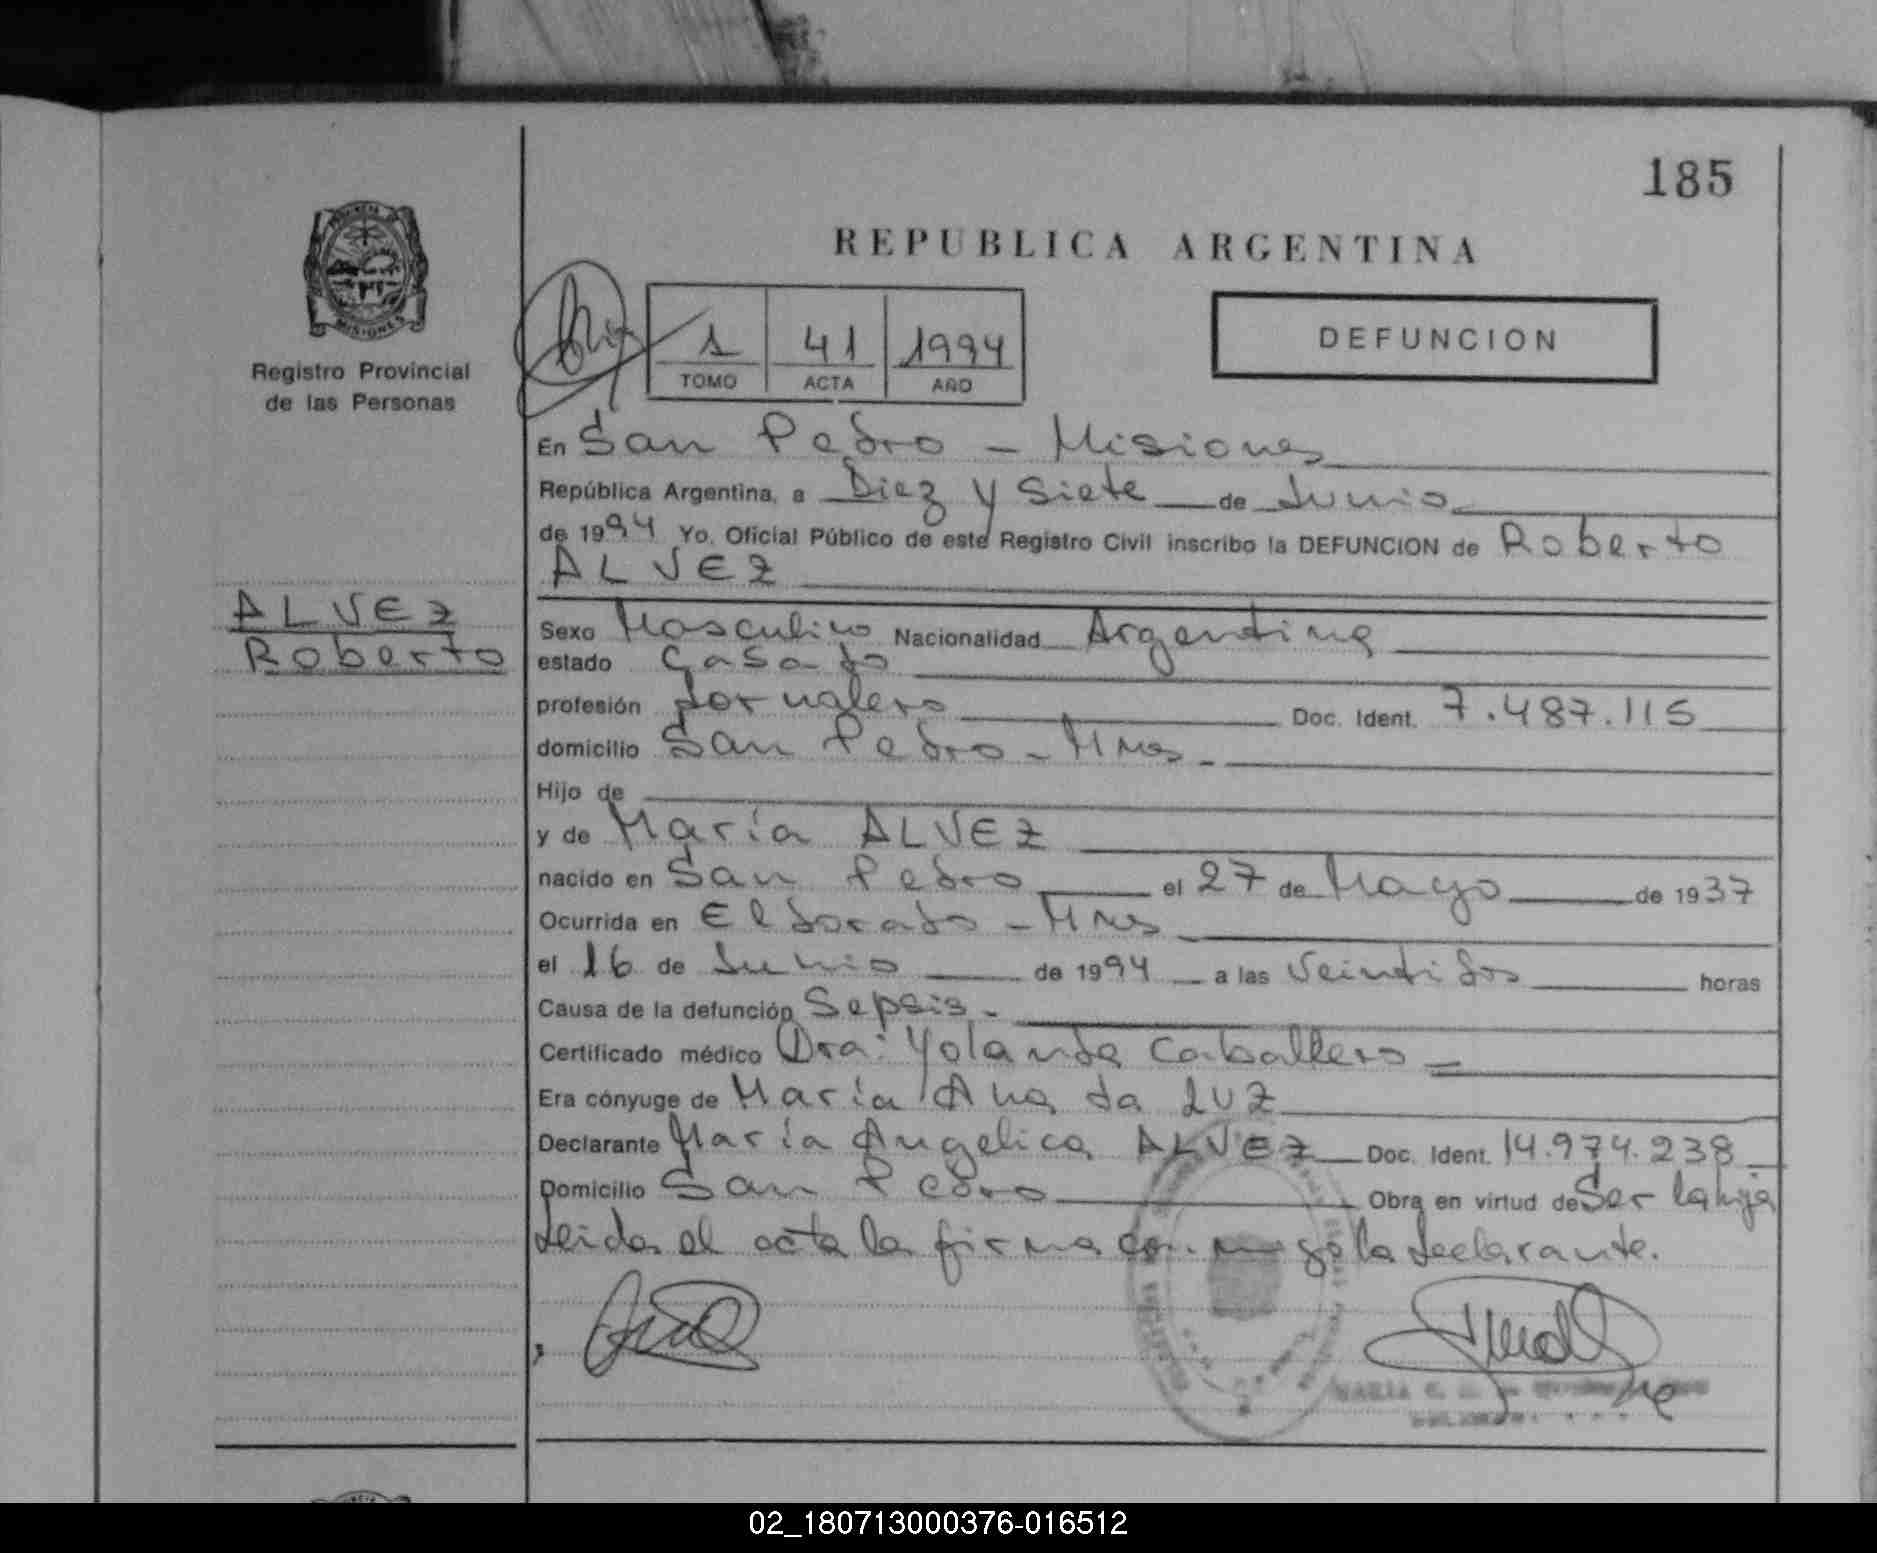 185
REPUBLICA ARGENTINA
PROVINCIA DE
MISIONES
Registro Provincial
de las Personas
1 41 1994
TOMO ACTA AÑO
DEFUNCION
En San Pedro - Misiones
República Argentina, a Diez y Siete de Junio
de 1994 Yo, Oficial Público de este Registro Civil inscribo la DEFUNCION de Roberto
ALVEZ
ALVEZ
Roberto
Sexo Masculino Nacionalidad Argentina
estado Casado
profesión Jornalero Doc. Ident. 7.487.115
domicilio San Pedro - Mnes -
Hijo de
y de María ALVEZ
nacido en San Pedro el 27 de Mayo de 1937
Ocurrida en Eldorado - Mnes
el 16 de Junio de 1994 a las Veintidos horas
Causa de la defunción Sepsis -
Certificado médico Dra: Yolanda Caballero
Era cónyuge de María Ana da LUZ
Declarante María Angelica ALVEZ Doc. Ident. 14.974.238
Domicilio San Pedro Obra en virtud de Ser la hija
Leida el acta la firma conmigo la declarante.
MARIA
02_180713000376-016512